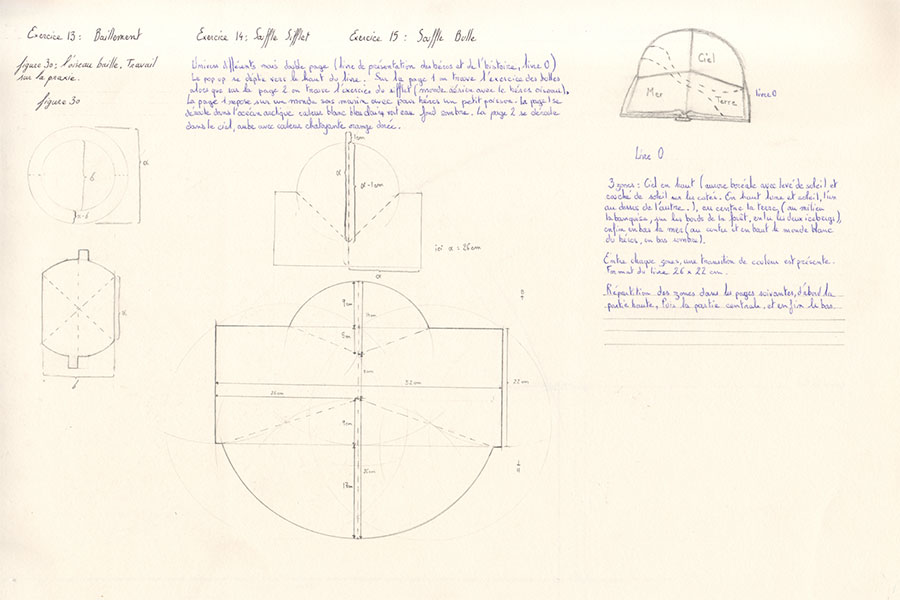 Exercice 13 : Baillement
figure 30 : l'oiseau baille. Travail
sur la praxie.
figure 30
a
b
b
Exercice 14 : Souffle Sifflet
Exercice 15 : Souffle Bulle
Univers différents mais double page (livre de présentation du héros et de l'histoire, livre 0)
Le pop up se déplie vers le haut du livre. Sur la page 1 on trouve l'exercice des bulles
alors que sur la page 2 on trouve l'exercice du sifflet (monde aérien avec le héros oiseau).
La page 1 repose sur un monde sous marin avec pour héros un petit poisson. La page 1 se
déroule dans l'océan arctique couleur blanc bleu fond sombre. La page 2 se déroule
dans le ciel, aube avec couleur chatoyante orange dorée.
1cm
a
a-1cm
ici a = 26cm
a
9cm
5cm
52cm
26cm
22cm
9cm
26cm
17cm
Ciel
Mer
Terre
Livre 0
Livre 0
3 zones : Ciel en haut (aurore boréale avec levé de soleil et
couché de soleil sur les cotés. En haut lune et soleil, l'un
au dessus de l'autre.), au centre la terre (au milieu
la banquise, sur les bords de la forêt, entre les deux icebergs),
enfin en bas la mer (au centre et en haut le monde blanc
du héros, en bas sombre).
Entre chaque zones, une transition de couleur est présente.
Format du livre 26 x 22 cm.
Répartition des zones dans les pages suivantes, d'abord la
partie haute, puis la partie centrale, et enfin le bas